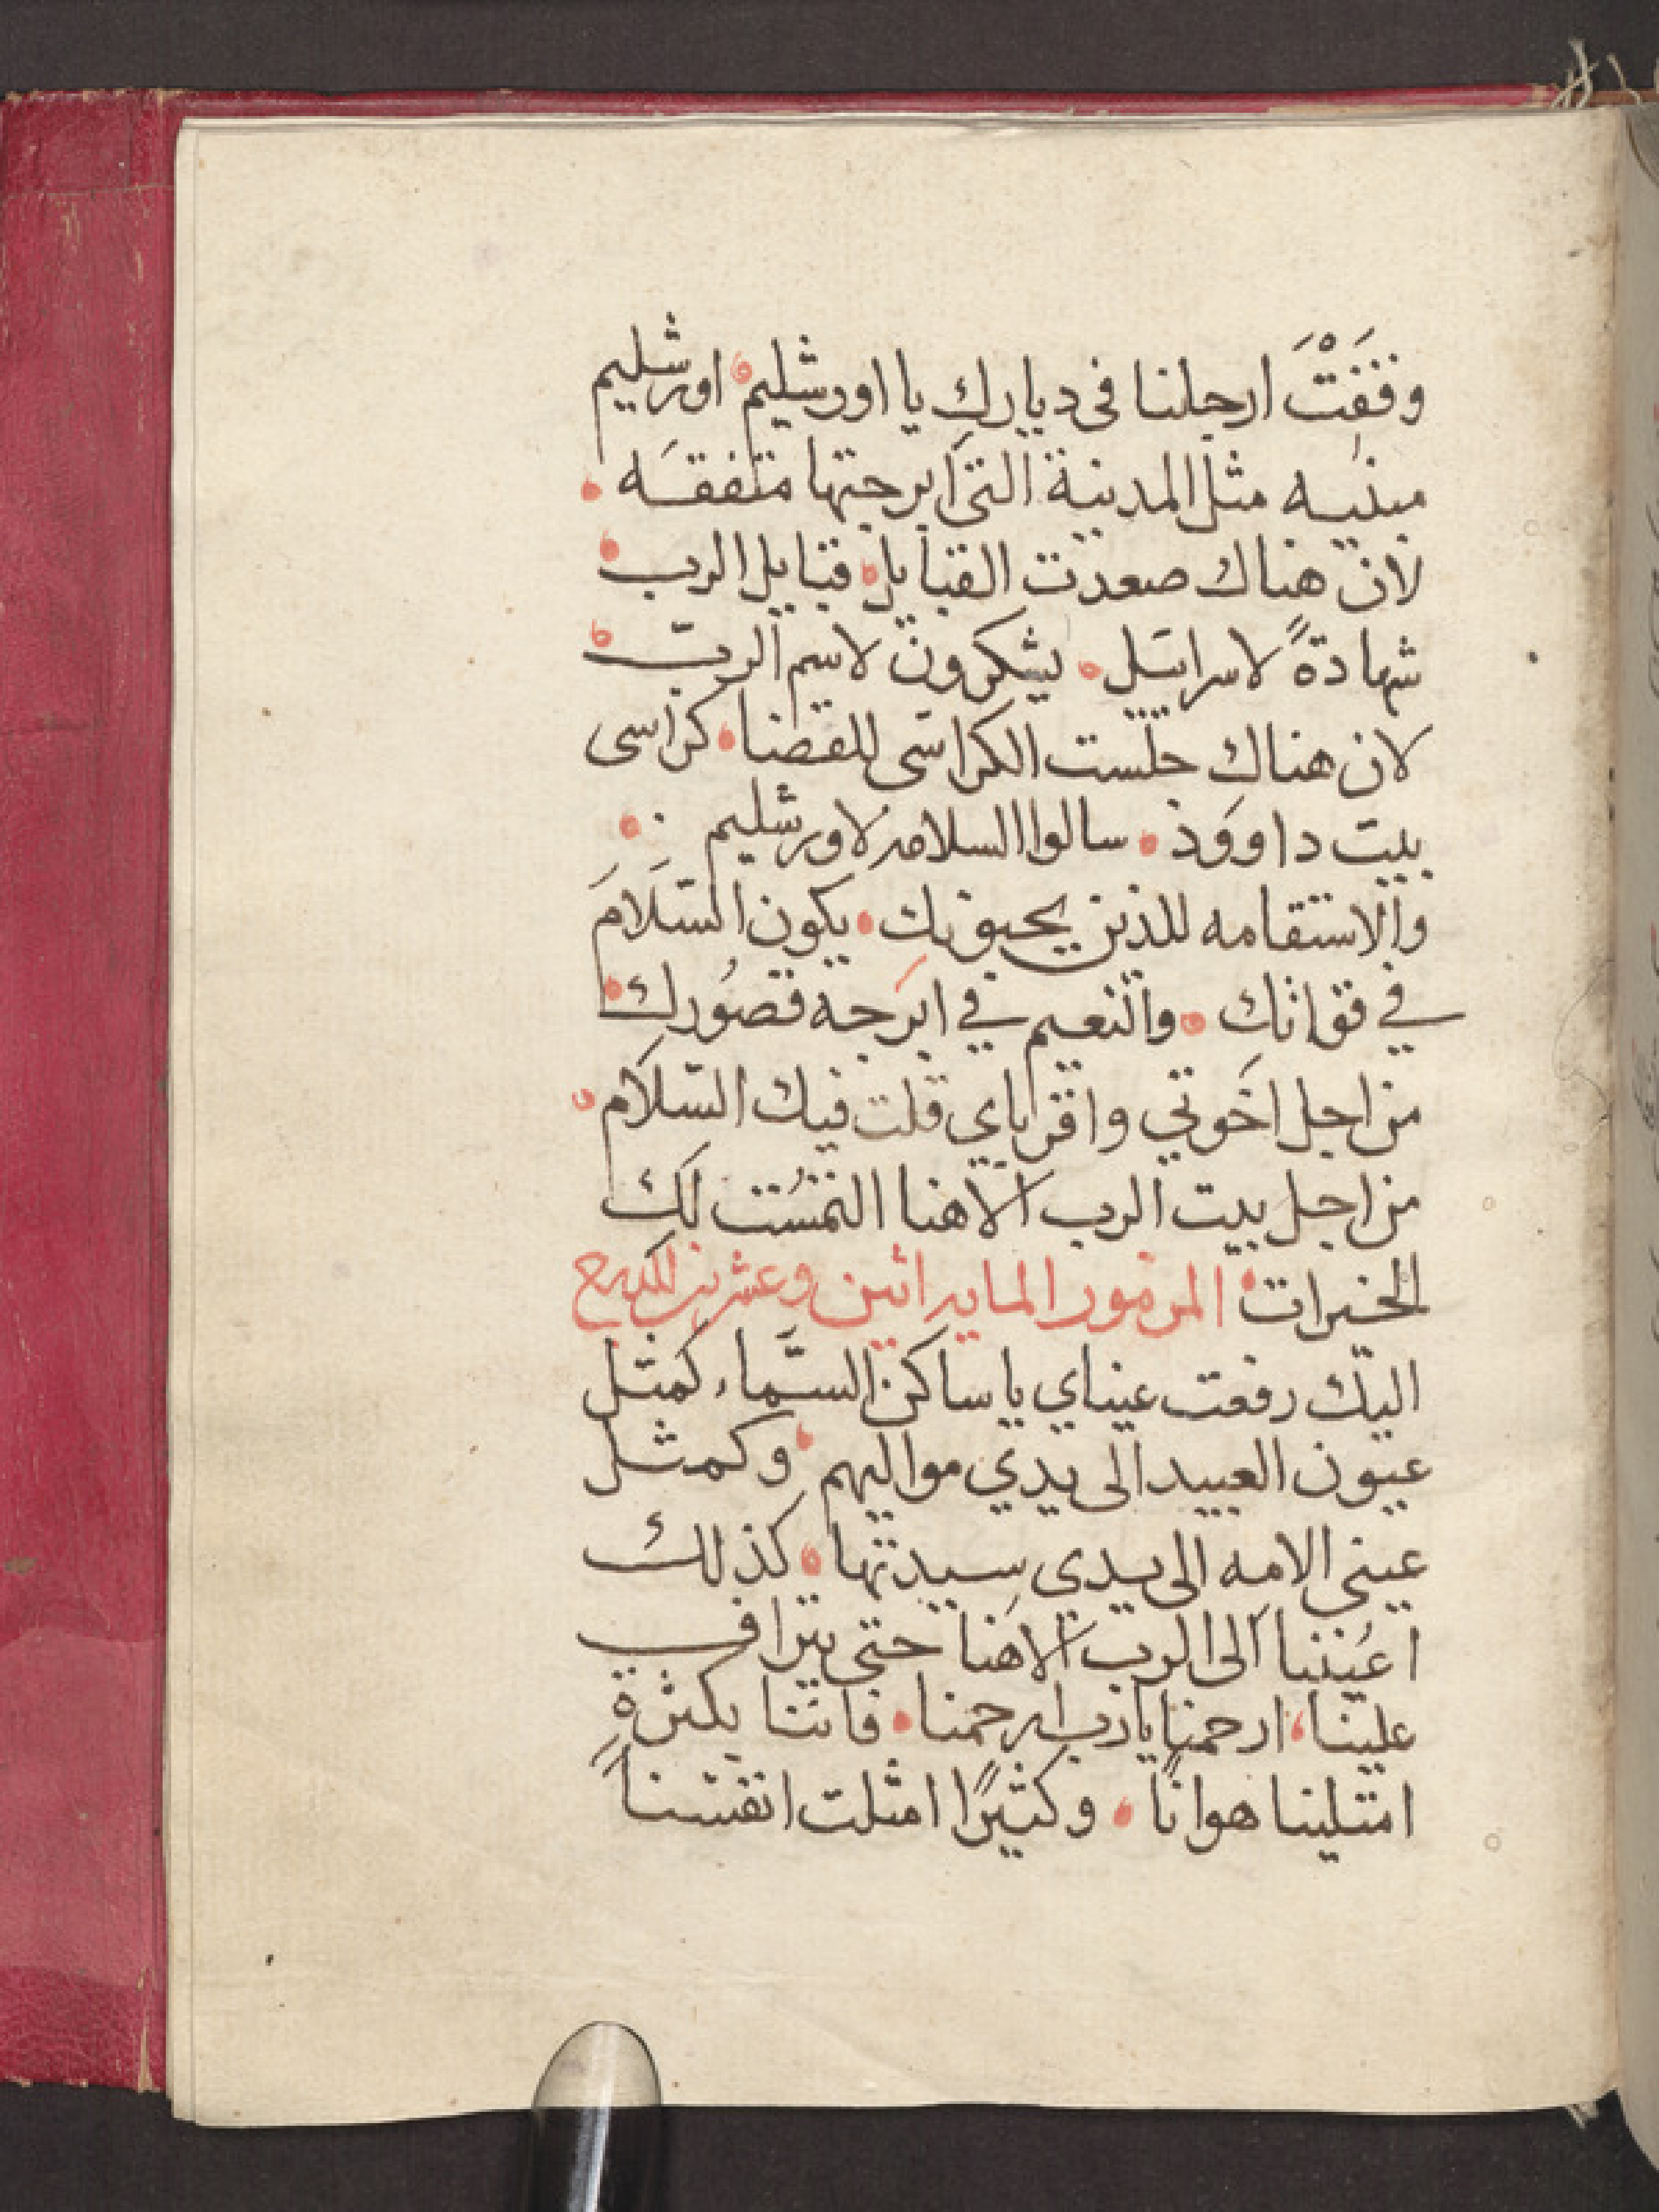 وقفَتْ ارجلنا فى ديارك يا اورشليم اورشليم
مبنيه مثل المدينة التى ابرجتها متفقه
لان هناك صعدت القبايل قبايل الرب
شهادةً لاسرايل يشكرون لاسم الرب
لان هناك جلست الكراسى للقضا كراسى
بيت داوود سالوا السلامه لاورشليم
والاستقامه للذين يحبونك يكون السّلَامَ
في قواتك والنعيم في ابرجه قصُورك
من اجل اخَوتي واقرباي قلت فيك السّلاَم
من اجل بيت الرب الاهنا التمسُت لك
الخيرات المزمور المايه اثنين وعشرين
اليك رفعت عيناي يا ساكن السَّماء كمثل
عيون العبيد الى يدي مواليهم وكمثل
عينى الامه الى يدى سيدتها كذلك
اعُيننا الى الرب الاهنا حتى يتراف
علينا ارحمنا يارب ارحمنا فاننا بكثرة
امتلينا هوانًا وكثيرًا امتلت انفسنا